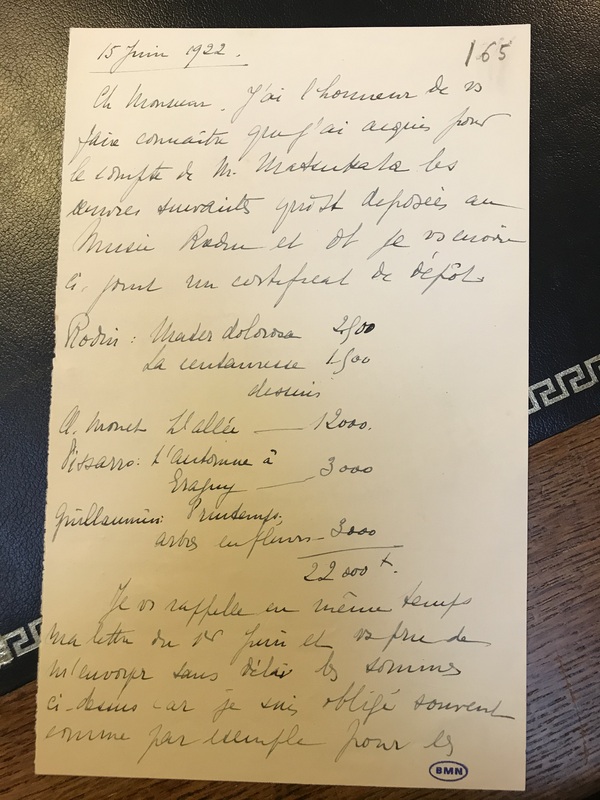 15 Juin 1922.
165
Ch Monsieur. J'ai l'honneur de vs
faire connaître que j'ai acquis pour
le compte de M. Matsukata les
œuvres suivantes qui st déposées au
Musée Rodin et dt je vs envoie
ci-joint un certificat de dépôt.
Rodin : Mater dolorosa 2500
La centauresse 1500
dessins
Cl. Monet L'allée — 12000.
Pissarro : L'automne à
Eragny — 3000
Guillaumin : Printemps,
arbres en fleurs — 3000
22 000 f.
Je vs rappelle en même temps
ma lettre du 1er Juin et vs prie de
m'envoyer sans délai les sommes
ci-dessus car je suis obligé souvent
comme par exemple pour les
BMN